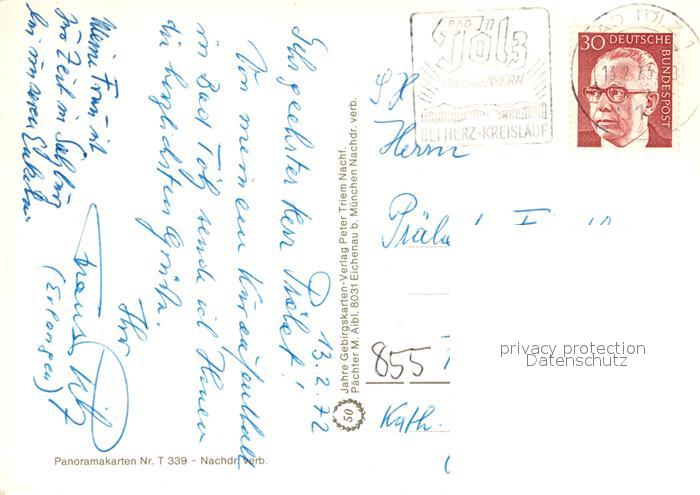 13.2.72
Sehr geehrter Herr Prälat!
Von meinem Kuraufenthalt
in Bad Tölz sende ich Ihnen
die herzlichsten Grüße.
Ihr
(Erlangen)
Meine Frau ist
zur Zeit in Salzburg
bei unseren Enkeln.
Panoramakarten Nr. T 339 - Nachdr. verb.
50
Jahre Gebirgskarten-Verlag Peter Triem Nachf.
Pächter M. Aibl, 8031 Eichenau b. München Nachdr. verb.
BAD
Tölz
OBERBAYERN
BEI HERZ-KREISLAUF
BAD TÖLZ 1
13.2.
30 DEUTSCHE
BUNDESPOST
Herrn
855
Kath.
privacy protection
Datenschutz